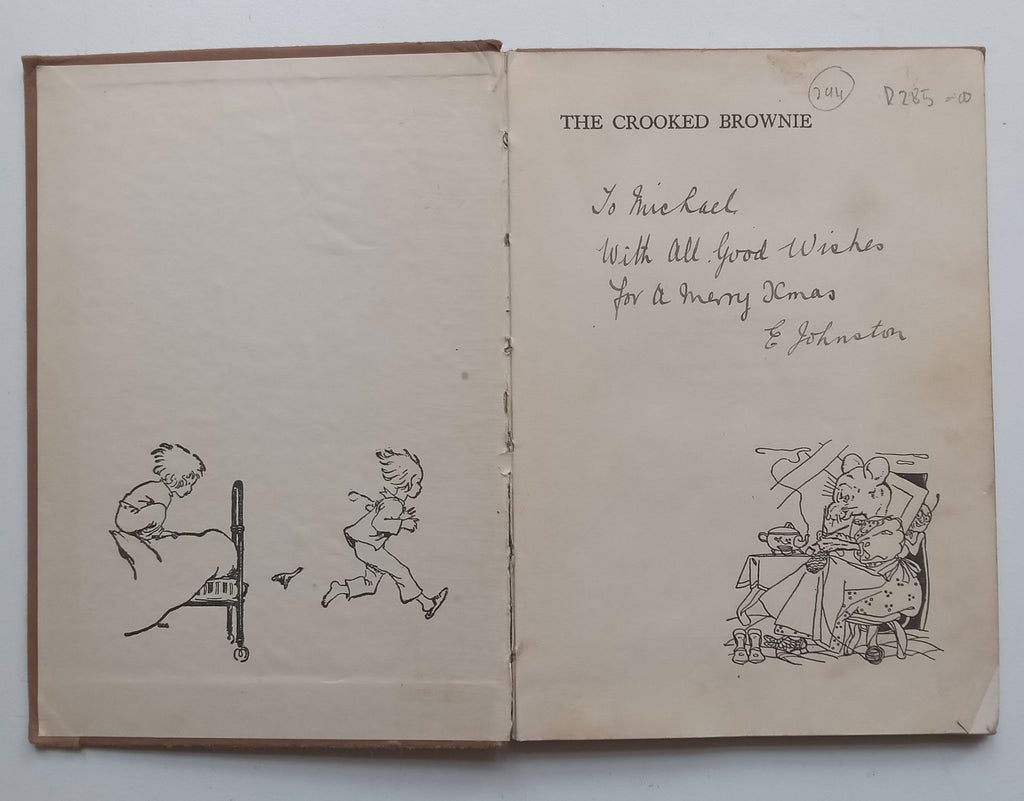 244
R285-00
THE CROOKED BROWNIE
To Michael
With All Good Wishes
for A Merry Xmas
E Johnston